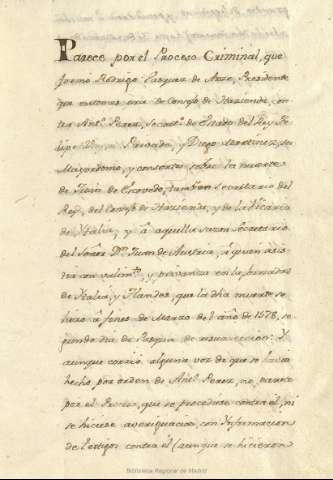 Parece por el Proceso Criminal, que
formó Rodrigo Vazquez de Arze, Presidente
que entonces era de Consejo de Hacienda, con
tra Ant.º Perez, Secret.º de Estado del Rey Fe
lipe y su Privado, y Diego Martinez, su
Mayordomo, y consortes, sobre la muerte
de Juan de Escovedo, tambien Secretario del
Rey, del Consejo de Hacienda, y de la
de Italia, y á aquella sazon Secretario
del Señor D.n Juan de Austria, á quien asis
tia con valim.to, y privanza en las jornadas
de Italia, y Flandes, que la dha muerte se
hizo á fines de Marzo del año de 1578, se
gundo dia de Pasqua de resurreccion. Y
aunque corrió alguna voz de que se havia
hecho por orden de Ant.º Perez, no parece
por el Proceso, que se procediese contra él, ni
se hiciese averiguacion, con Informacion
de testigos contra él (aunque se hicieron
Biblioteca Regional de Madrid